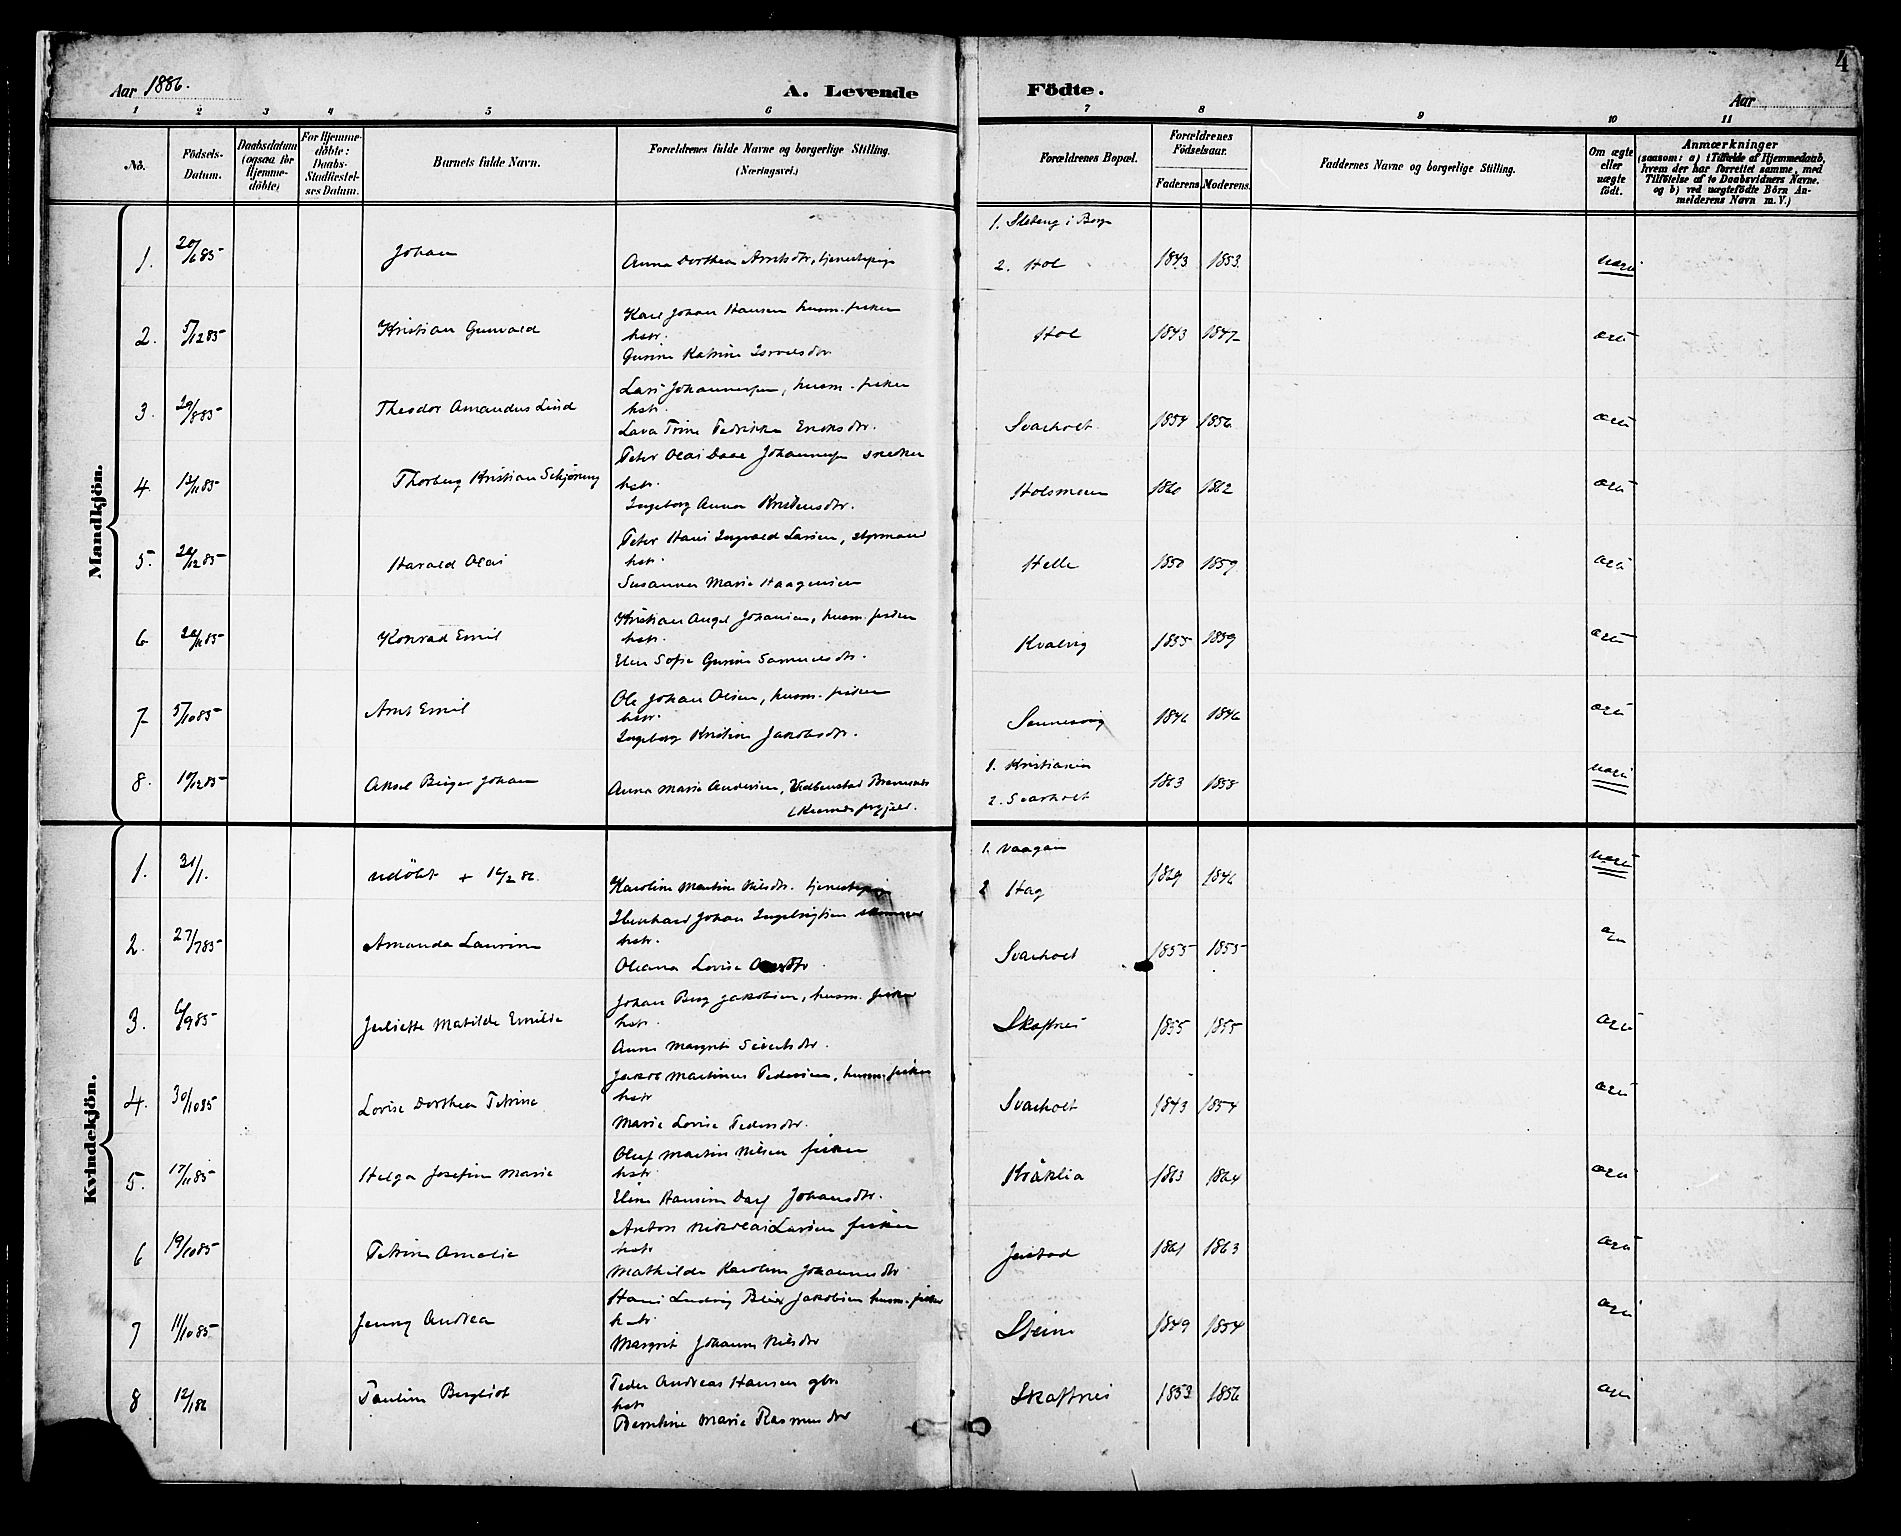 4
Aar 1886.
A. Levende Födte.
Aar
1 2 3 4 5 6 7 8 9 10 11
No.
Födsels-Datum.
Daabsdatum (ogsaa for Hjemme-döbte)
For Hjemme-döbte: Daabs-Stadfæstel-ses Datum.
Barnets fulde Navn.
Forældrenes fulde Navne og borgerlige Stilling.
(Næringsvei.)
Forældrenes Bopæl.
Forældrenes Födselsaar.
Faderens Moderens.
Faddernes Navne og borgerlige Stilling.
Om ægte eller uægte födt.
Anmærkninger
(saasom: a) i Tilfælde af Hjemmedaab,
hvem der har forrettet samme, med
Tilföielse af to Daabsvidners Navne.
og b) ved uægtefödte Börn An-
melderens Navn m. V.)
Mandkjön.
1. 20/6 85 Johan
Anna Dorthea Arntsdtr, tjenestepige
1. Steberg i Borge
2. Hol 1843 1853. uægte
2. 5/12 85 Kristian Gunvald
Karl Johan Hansen husm. fisker
hstr.
Gurine Katrine Israelsdtr
Hol 1843 1847 ægte
3. 29/8 85 Theodor Amandus Lind
Lars Johannessen, husm. fisker
hstr.
Lava Trine Pedrikke Eriksdtr.
Svarholt 1854 1856 ægte
4. 13/11 85 Thorberg Kristian Schjöning
Peter Olai Daae Johannessen snedker
hstr.
Ingeborg Anna Kristensdtr.
Holsmoen 1860 1862 ægte
5. 22/12 85 Harald Olai
Peter Hans Ingvald Larsen, styrmand
hstr.
Susanna Marie Haagensen
Helle 1850 1859 ægte
6 22/11 85 Konrad Emil
Kristian Angel Johansen, husm. fisker
hstr.
Elen Sofie Gurine Samuelsdtr.
Kvalvig 1855 1859 ægte
7 5/10 85 Arnt Emil
Ole Johan Olsen, husm. fisker
hstr.
Ingeborg Kristine Jakobsdtr.
Sennesvig 1846 1846 ægte
8. 19/12 85 Aksel Birger Johan
Anna Marie Andersen, Bremnes
1. Kristiania
2. Svarholt 1863 1858 uægte
Kvindekjön.
1. 31/1. udöbt + 16/2 86.
Karoline Martine Nilsdtr. tjenestepige
1. Vaagan
2 Hag 1869 1846 uægte
2. 27/7 85 Amanda Laurine
Johan Ingebrigtsen
hstr.
Oleana Lovise
Svarholt 1855 1855 ægte
3. 6/9 85 Juliette Matilde Emilie
Johan Berg Jakobsen, husm. fisker
hstr.
Anne Margrete Sivertsdtr.
Skaftnes 1855 1855 ægte
4. 30/10 85 Lovise Dorthea Petrine
Jakob Martinus Pedersen, husm. fisker
hstr
Marie Lovise Pedersdtr.
Svarholt 1843 1854 ægte
5. 17/11 85 Helga Josefine Marie
Oluf Martin Nilsen fisker
hstr
Eline Hansine Dorf Johansdtr.
Kråklia 1863 1864 ægte
6 19/10 85 Petrine Amalie
Anton Nikolai Larsen fisker
hstr
Mathilde Karoline Johannesdtr
Jerstad 1861 1863 ægte
7 11/10 85 Jenny Andrea
Hans Ludvig Bleix Jakobsen husm. fisker
hstr
Margrit Johanna Nilsdtr
Steine 1849 1854 ægte
8 12/1 86 Pauline Bergliot
Peder Andreas Hansen gbr.
hstr
Berntine Marie Rasmusdtr
Skaftnes 1853 1856 ægte